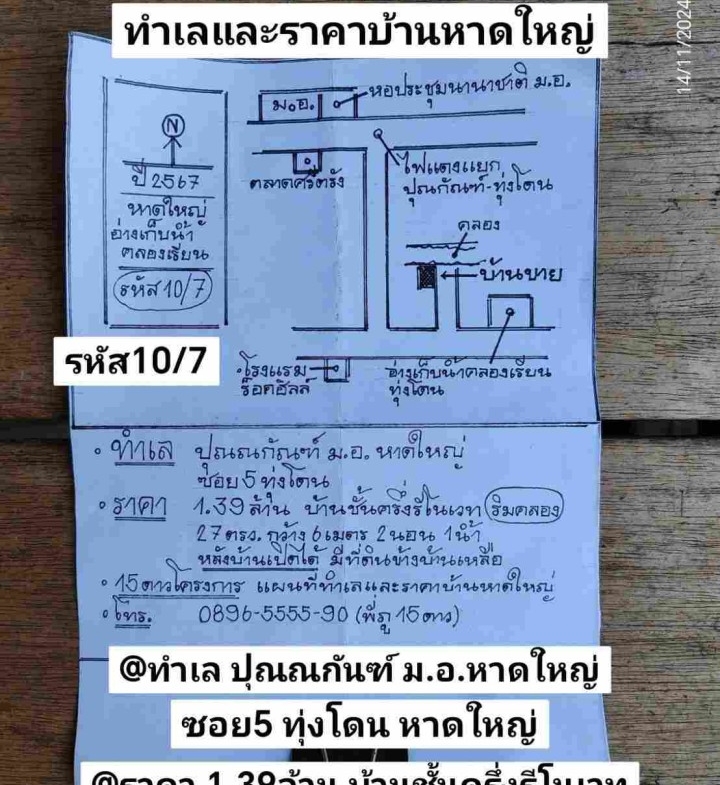 ทำเลและราคาบ้านหาดใหญ่
14/11/2024
N
ปี 2567
หาดใหญ่
อ่างเก็บน้ำ
คลองเรียน
รหัส 10/7
ม.อ.
หอประชุมนานาชาติ ม.อ.
ตลาดศรีตรัง
ไฟแดงแยก
ปุณกัณฑ์-ทุ่งโดน
คลอง
บ้านขาย
รหัส10/7
โรงแรม
ร็อคฮิลล์
อ่างเก็บน้ำคลองเรียน
ทุ่งโดน
• ทำเล ปุณณกัณฑ์ ม.อ. หาดใหญ่
ซอย 5 ทุ่งโดน
• ราคา 1.39 ล้าน บ้านชั้นครึ่งรีโนเวท ริมคลอง
27 ตรว. กว้าง 6 เมตร 2 นอน 1 น้ำ
หลังบ้านเปิดได้ มีที่ดินข้างบ้านเหลือ
• 15 ดาวโครงการ แผนที่ทำเลและราคาบ้านหาดใหญ่
• โทร. 0896-5555-90 (พี่ภู 15 ดาว)
@ทำเล ปุณณกันฑ์ ม.อ.หาดใหญ่
ซอย5 ทุ่งโดน หาดใหญ่
@ราคา 1.39ล้าน บ้านชั้นครึ่งรีโนเวท